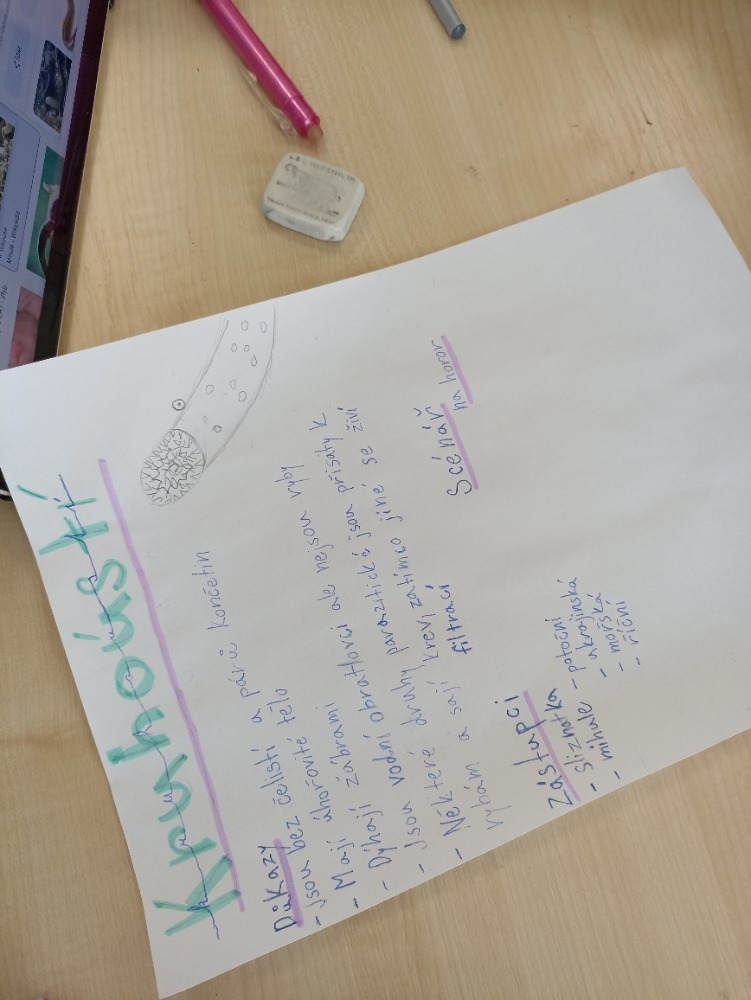 Kruhoústí
Důkazy
- Jsou bez čelistí a párů končetin
- Mají úhořovité tělo
- Dýchají žábrami
- Jsou vodní obratlovci ale nejsou ryby
- Některé druhy parazitické jsou přisáty k
rybám a sají krev, zatímco jiné se živí
filtrací
Zástupci
- Sliznatka
- mihule - potoční
- ukrajinská
- mořská
- říční
Scénář
na horor